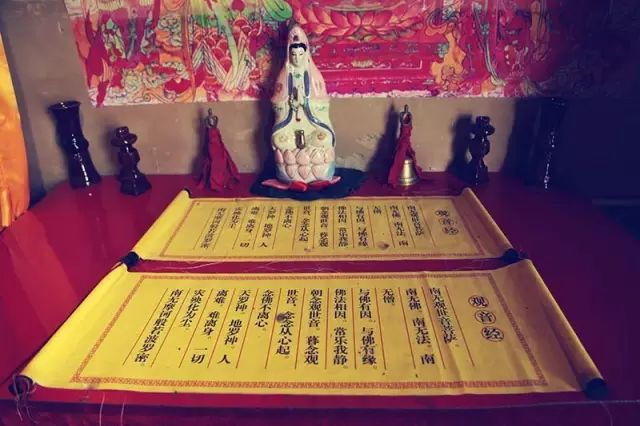 观音经
南无观世音菩萨
南无佛 南无法 南
无僧
与佛有因 与佛有缘
佛法相因 常乐我静
朝念观世音 暮念观
世音 念念从心起
念佛不离心
天罗神 地罗神 人
离难 难离身 一切
灾殃化为尘
南无摩诃般若波罗密
观音经
南无观世音菩萨。
南无佛 南无法 南
无僧
与佛有因。与佛有缘
佛法相因。常乐我静
朝念观世音。暮念观
世音。念念从心起
念佛不离心。
天罗神 地罗神 人
离难 难离身。一切
灾殃化为尘。
南无摩诃般若波罗密。